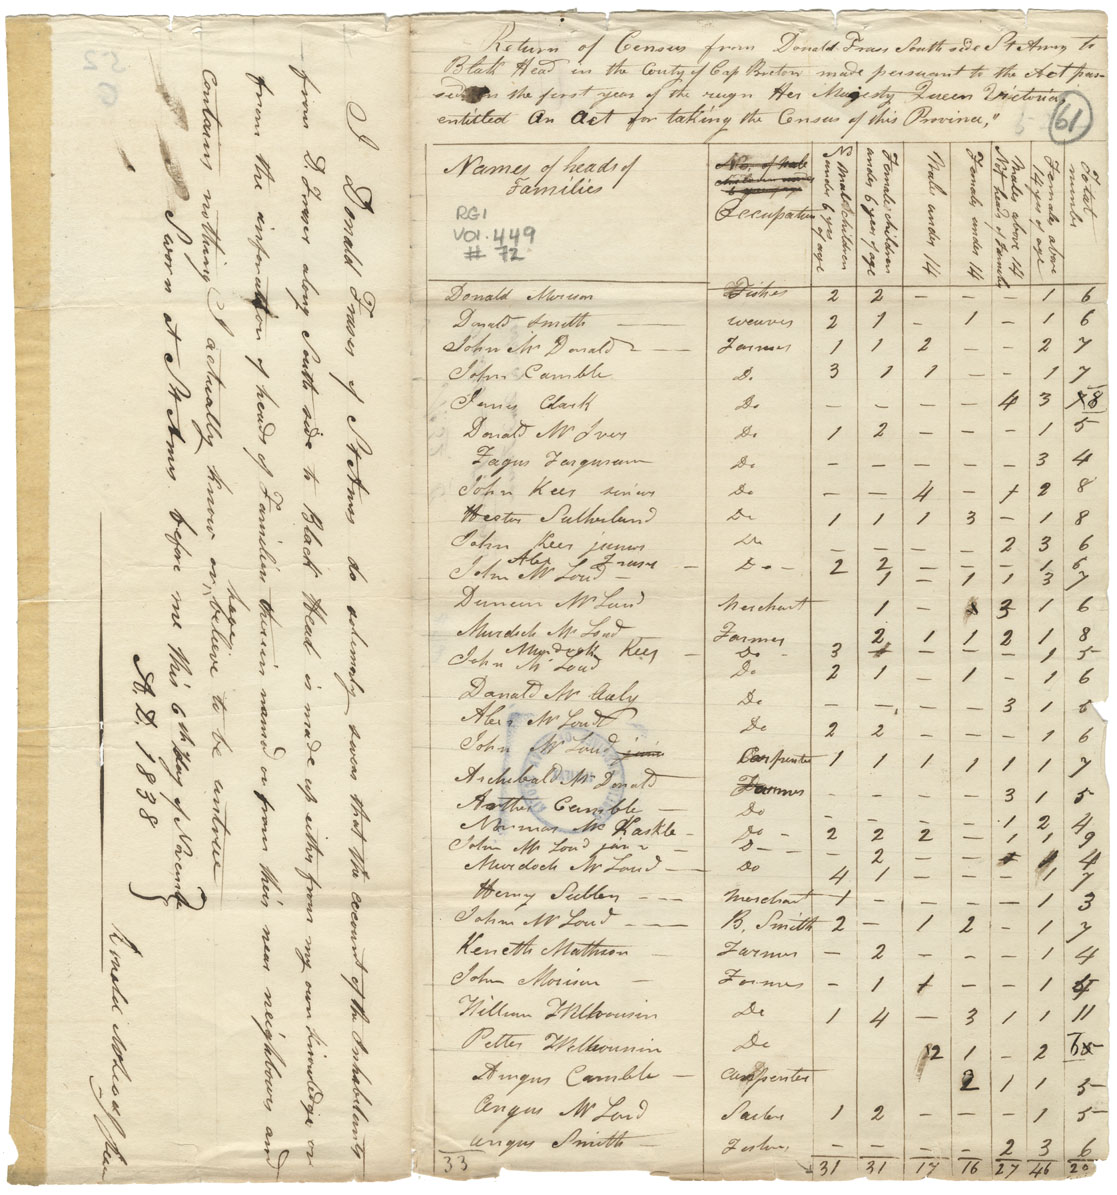 Return of Census from Donald Fraser South side St Anns to
Black Head in the County of Cap Breton made persuant to the Act pas-
sed in the first year of the reign Her Majesty Queen Victoria,
entitled An Act for taking the Census of this Province,"
61
Names of heads of Families
Occupation
No Male children under 6 yrs of age
Female children under 6 years of age
Males under 14
Females under 14
Males above 14 Not heads of Families
Females above 14 yrs of age
Total number
RG1
VOL. 449
# 72
Donald Morison Fisher 2 2 – – – 1 6
Donald Smith weaver 2 1 – 1 – 1 6
John Mc Donald Farmer 1 1 2 – – 2 7
John Camble Do 3 1 1 – – 1 7
James Clark Do – – – – 4 3 8
Donald Mc Iver Do 1 2 – – – 1 5
Fagus Fargursann Do – – – – – 3 4
John Kees senior Do – – 4 – 1 2 8
Hector Sutherland Do 1 1 1 3 – 1 8
John Kees junior Do – – – – 2 3 6
Alex Fraser Do 2 2 – – – 1 6
John Mc Loud – 1 – 1 1 3 7
Duncan Mc Loud Merchant 1 – 3 1 6
Murdoch Mc Loud Farmer 2 1 1 2 1 8
Murdock Kees Do 3 – – – 1 5
John Mc Loud Do 2 1 – 1 – 1 6
Donald Mc Auly Do – – – – 3 1 5
Alex Mc Loud Do 2 2 – – – 1 6
John Mc Loud Carpenter 1 1 1 1 1 1 7
Archibald Mc Donald Farmer – – – – 3 1 5
Arther Camble Do – – – – 1 2 4
Norman Mc Kaskle Do 2 2 2 – 1 1 9
John Mc Loud junr Do – 2 – – 4
Murdoch Mc Loud Do 4 1 – – – 1 7
Henry Merchant 1 – – – – 1 3
John Mc Loud B. Smith 2 – 1 2 – 1 7
Keneth Mathison Farmer – 2 – – – 1 4
John Morison Farmer – 1 1 – – 1
William Do 1 4 – 3 1 1 11
Petter Do 2 1 – 2
Angus Camble carpenter 2 1 1 5
Angus Mc Loud Sailor 1 2 – – – 1 5
Angus Smith Fisher – – – – 2 3 6
33 31 31 17 16 27 46 20
I Donald Fraser of St Anns do solemnly swear that the account of the Inhabitants
from D. Fraser along South side to Black Head is made up either from my own knowledge or
from the information of heads of Families therein named or from their near neighbours and
contains nothing I actually know or have believe to be untrue
Sworn at St Anns before me this 6th day of November
A.D. 1838